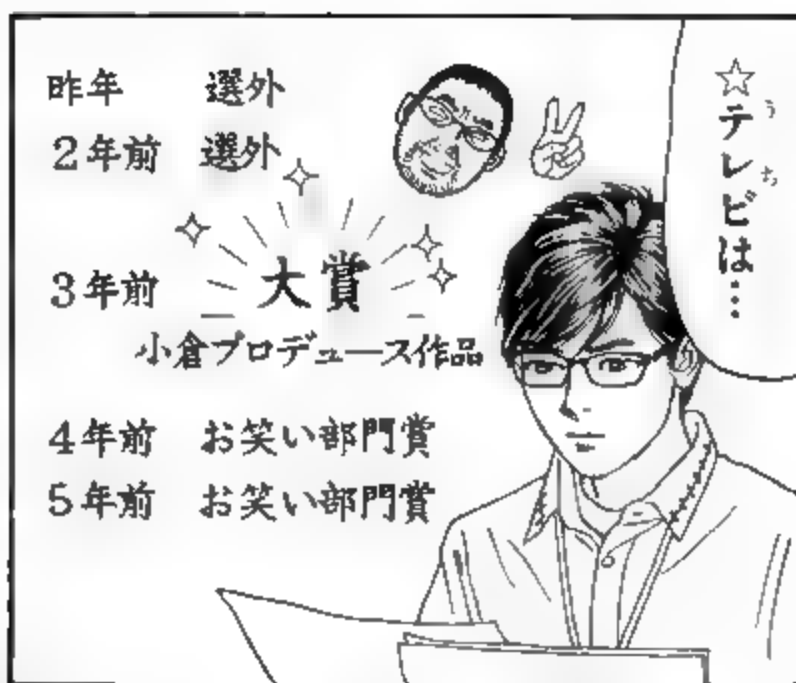 ☆テレビは…
うち
昨年 選外
2年前 選外
3年前 大賞
小倉プロデュース作品
4年前 お笑い部門賞
5年前 お笑い部門賞